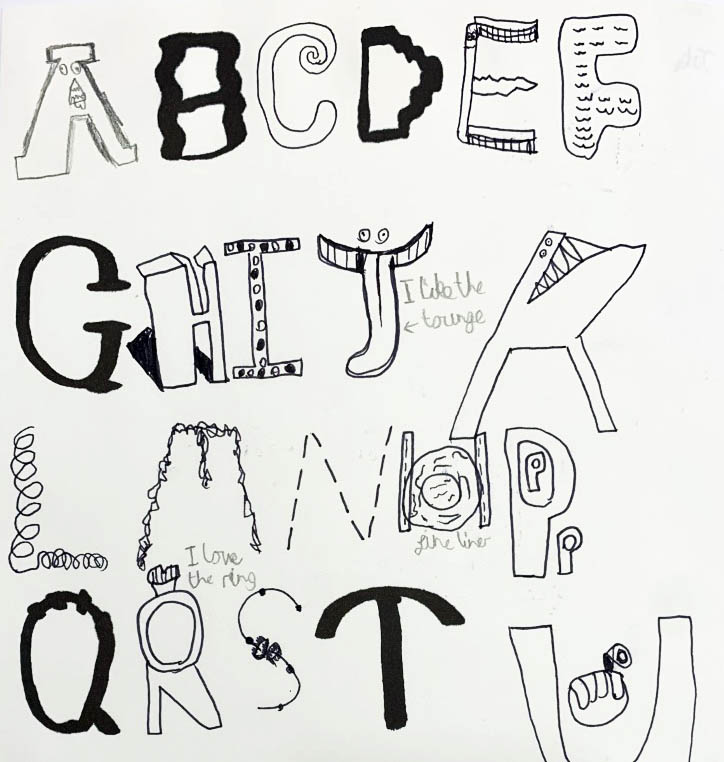 A B C D E F
G H I J K
I like the
← tounge
L M N O P
fine liner
I love
the ring
Q R S T U